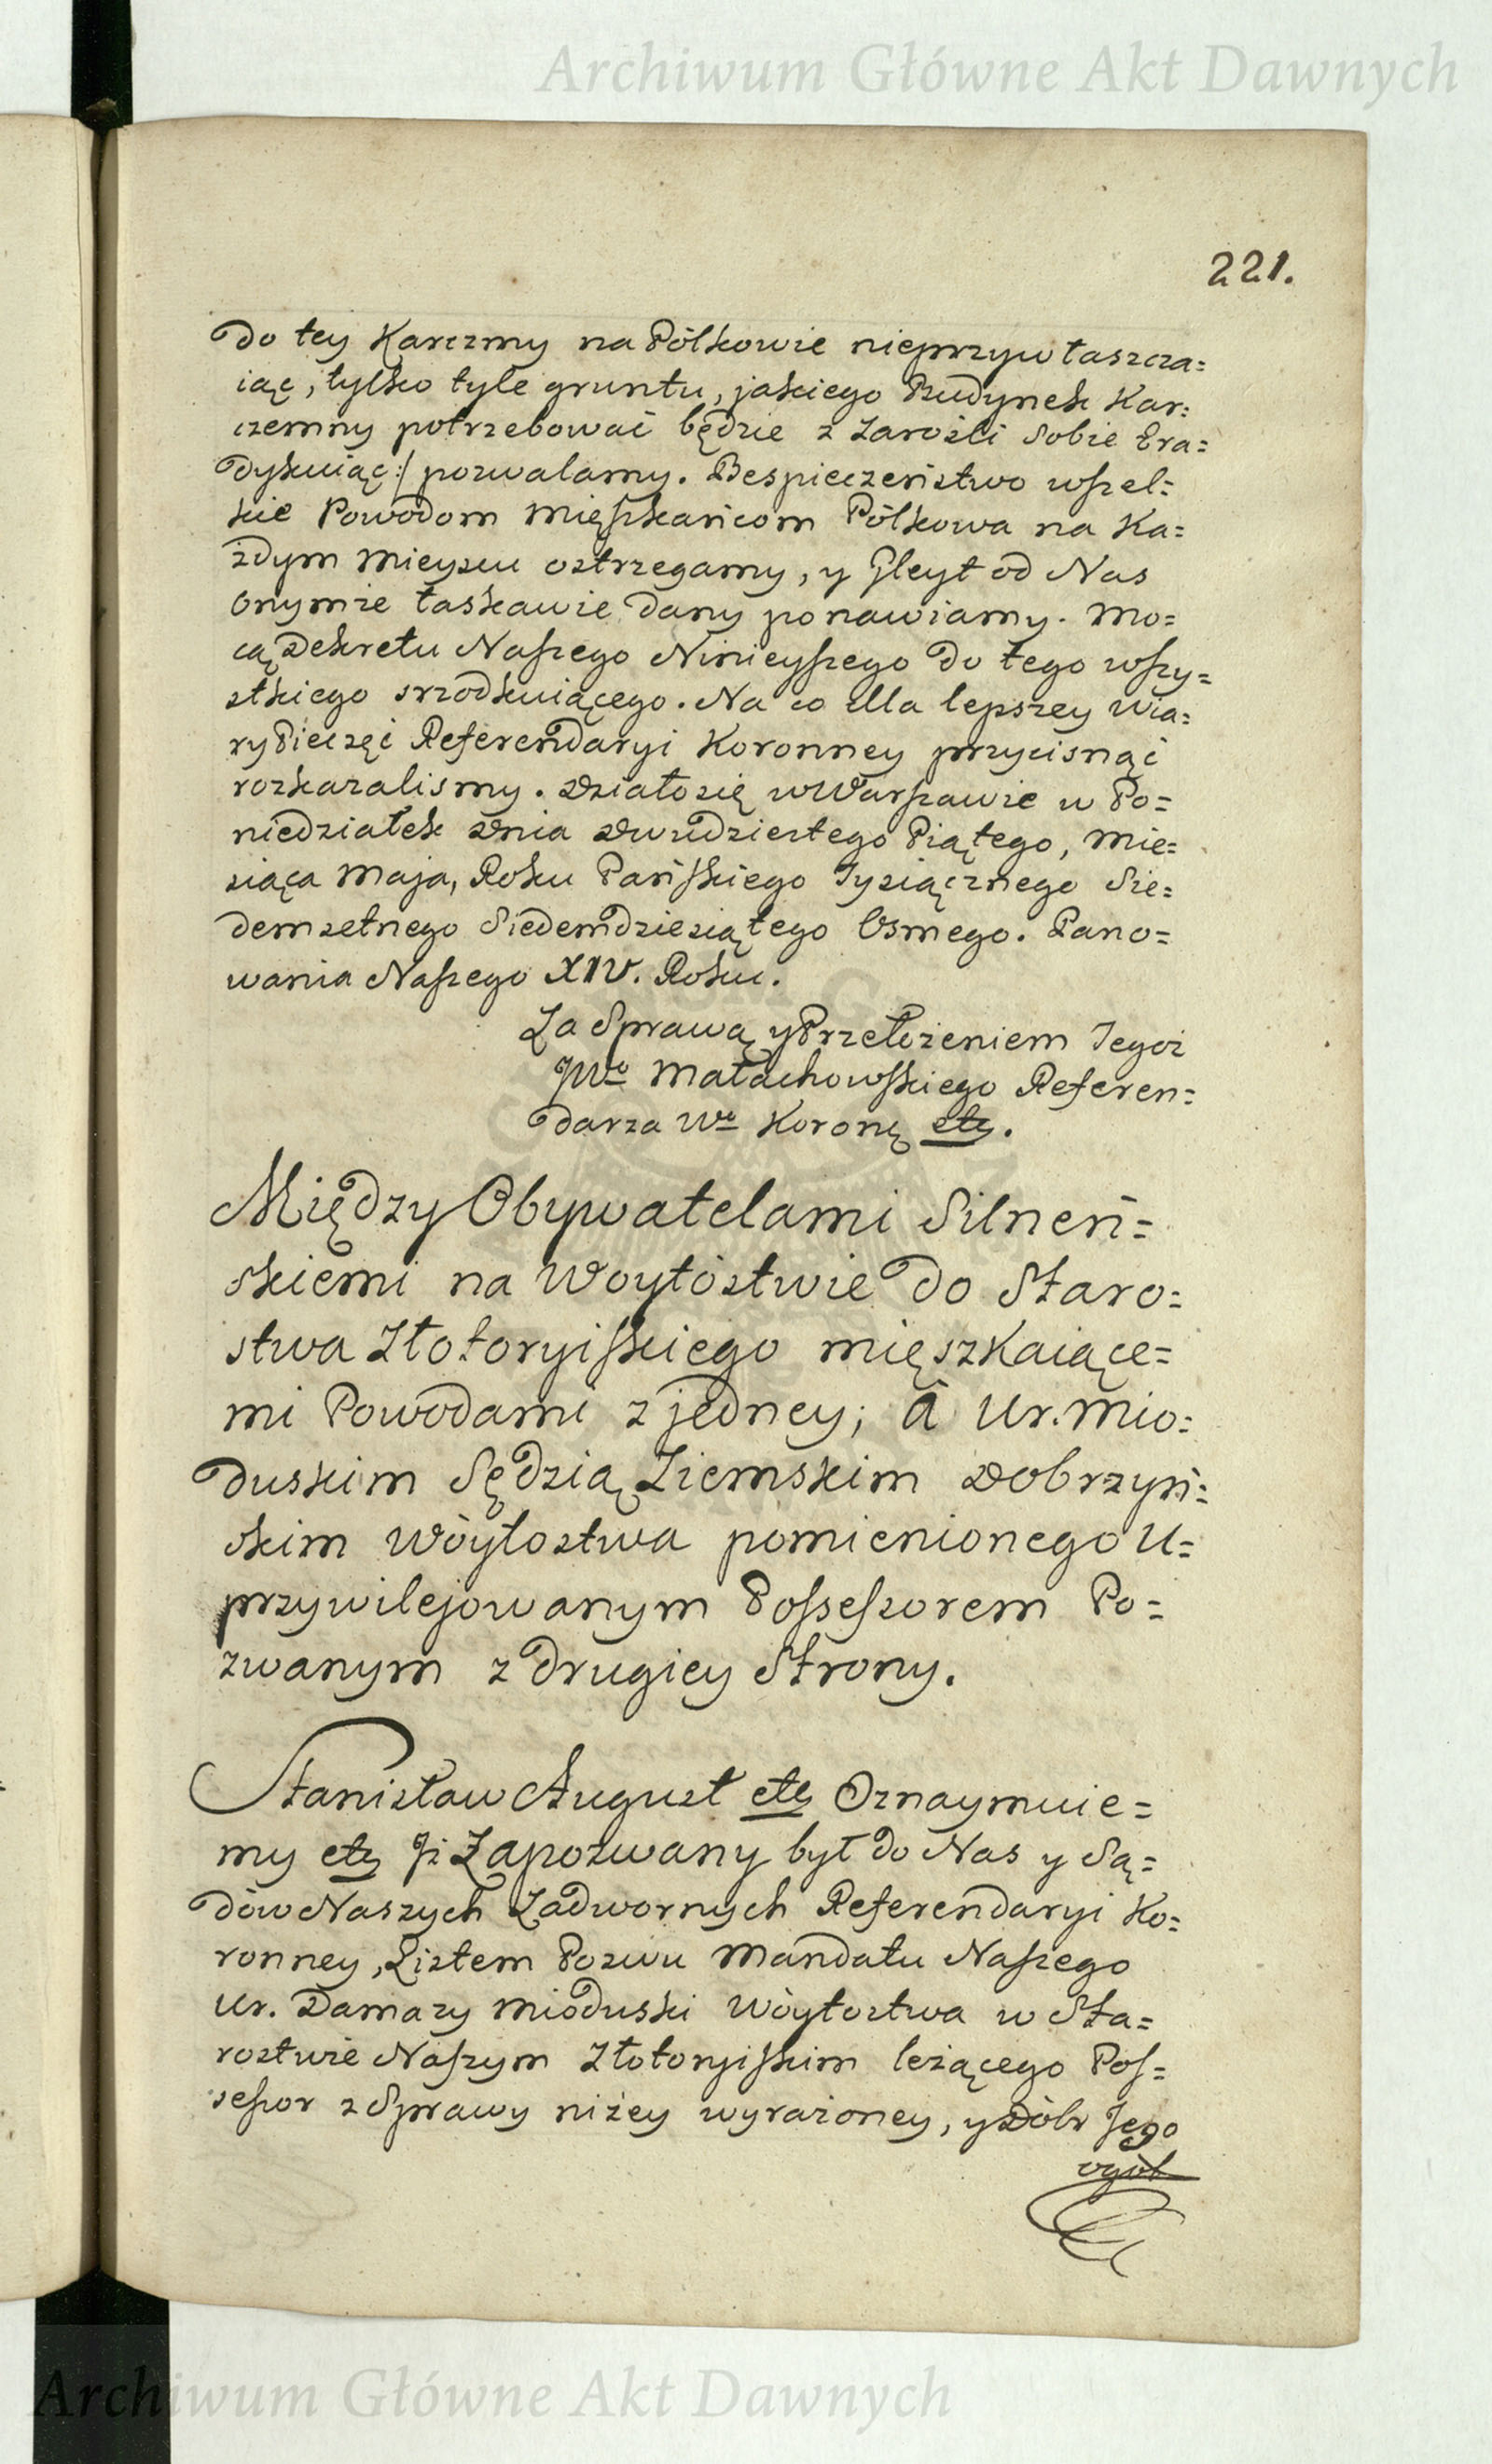 Archiwum Główne Akt Dawnych
221.
do tey Karczmy na Pólkowie nieprzywłaszcza=
iąc, tylko tyle gruntu, jakiego Budynek Kar=
czemny potrzebować będzie z Zarośli Sobie Era=
dykuiąc:/ pozwalamy. Bespieczeństwo wszel=
kie Powodom Mięszkańcom Pólkowa na Ka=
żdym Mieyscu ostrzegamy, y Gleyt od Nas
Onymże łaskawie dany ponawiamy. Mo=
cą Dekretu Naszego Ninieyszego do tego wszy=
stkiego srzodkuiącego. Na co dla lepszey Wia=
ry Pieczęć Referendaryi Koronney przycisnąć
rozkazalismy. Działo się w Warszawie w Po=
niedziałek Dnia Dwudziestego Piątego, Mie=
siąca Maja, Roku Pańskiego Tysiącznego Sie=
demsetnego Siedemdziesiątego Osmego. Pano=
wania Naszego XIV. Roku.
Za Sprawą y Przełożeniem Tegoż
JWo Małachowskiego Referen=
darza Wo Koronę etc.
Między Obywatelami Silneń=
skiemi na Woytóstwie do Staro=
stwa Złotoryiskiego mięszkaiące=
mi Powodami z jedney; à Ur. Mio=
duskim Sędzią Ziemskim Dobrzyń=
skim Wóytostwa pomienionego U=
przywilejowanym Possessorem Po=
zwanym z drugiey Strony.
Stanisław August etc Oznaymuie=
my etc Jż Zapozwany był do Nas y Są=
dów Naszych Zadwornych Referendaryi Ko=
ronney, Listem Pozwu Mandatu Naszego
Ur. Damazy Mioduski Wóytostwa w Sta=
rostwie Naszym Złotoryiskim leżącego Pos=
sessor z Sprawy niżey wyrażoney, y Dóbr Jego
ogół
Archiwum Główne Akt Dawnych